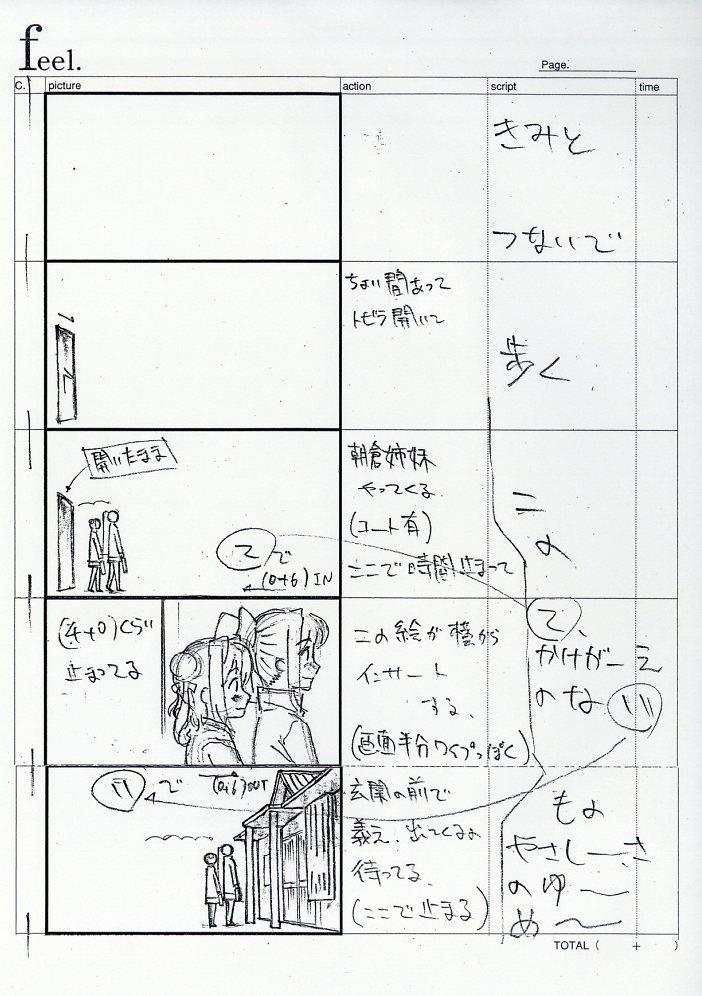 feel.
Page.
C.
picture
action
script
time
きみと
つないで
ちょい間あって
トビラ開いて
歩く
開いたまま
朝倉姉妹
やってくる
(コート有)
ここで時間止まって
てで
(0+6) IN
この
(4+0)くらい
止まってる
この絵が横から
インサート
する、
(画面半分ワイプっぽく)
て、
かけがーえ
のな
い
いで
(0+6) OUT
玄関の前で
義之、出てくるの
待ってる、
(ここで止まる)
もの
やさしーさ
のゆ〜
め〜
TOTAL ( + )